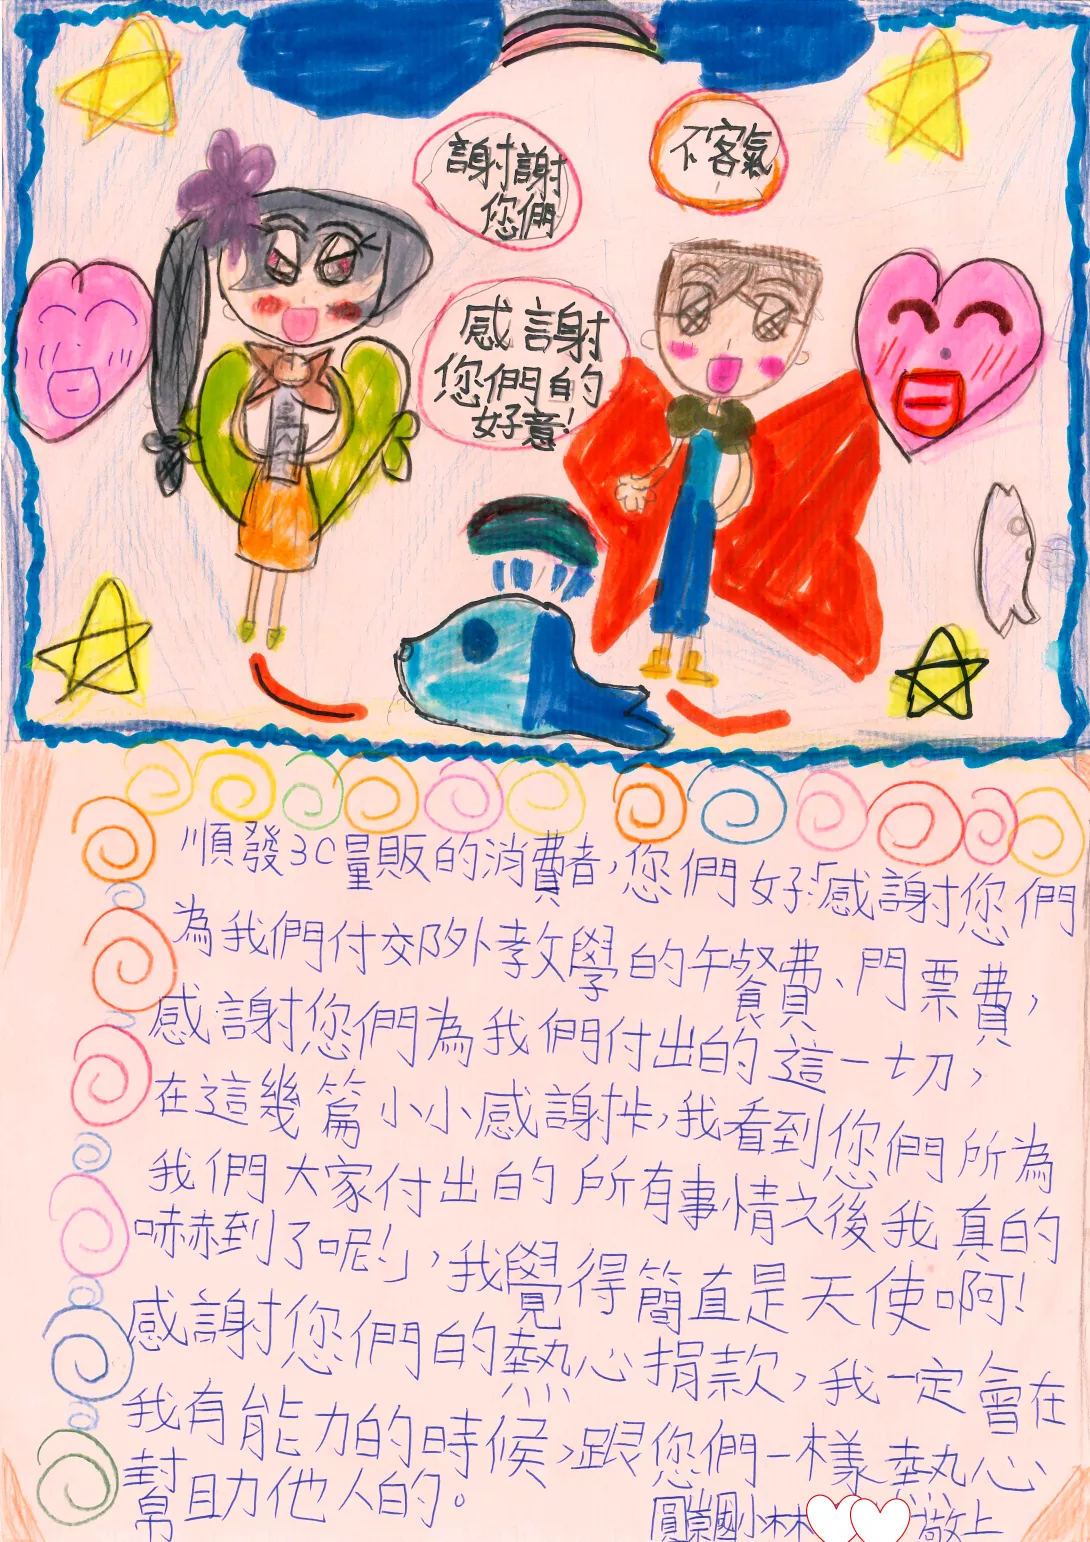 謝謝
您們
不客氣
感謝
您們的
好意!
順發3C量販的消費者,您們好「感謝您們
為我們付校外教學的午餐費、門票費,
感謝您們為我們付出的這一切,
在這幾篇小小感謝卡,我看到您們所為
我們大家付出的所有事情之後我真的
嚇到了呢!」,我覺得簡直是天使啊!
感謝您們的熱心捐款,我一定會在
我有能力的時候,跟您們一樣熱心
幫助他人的。
圓崇國小林
敬上